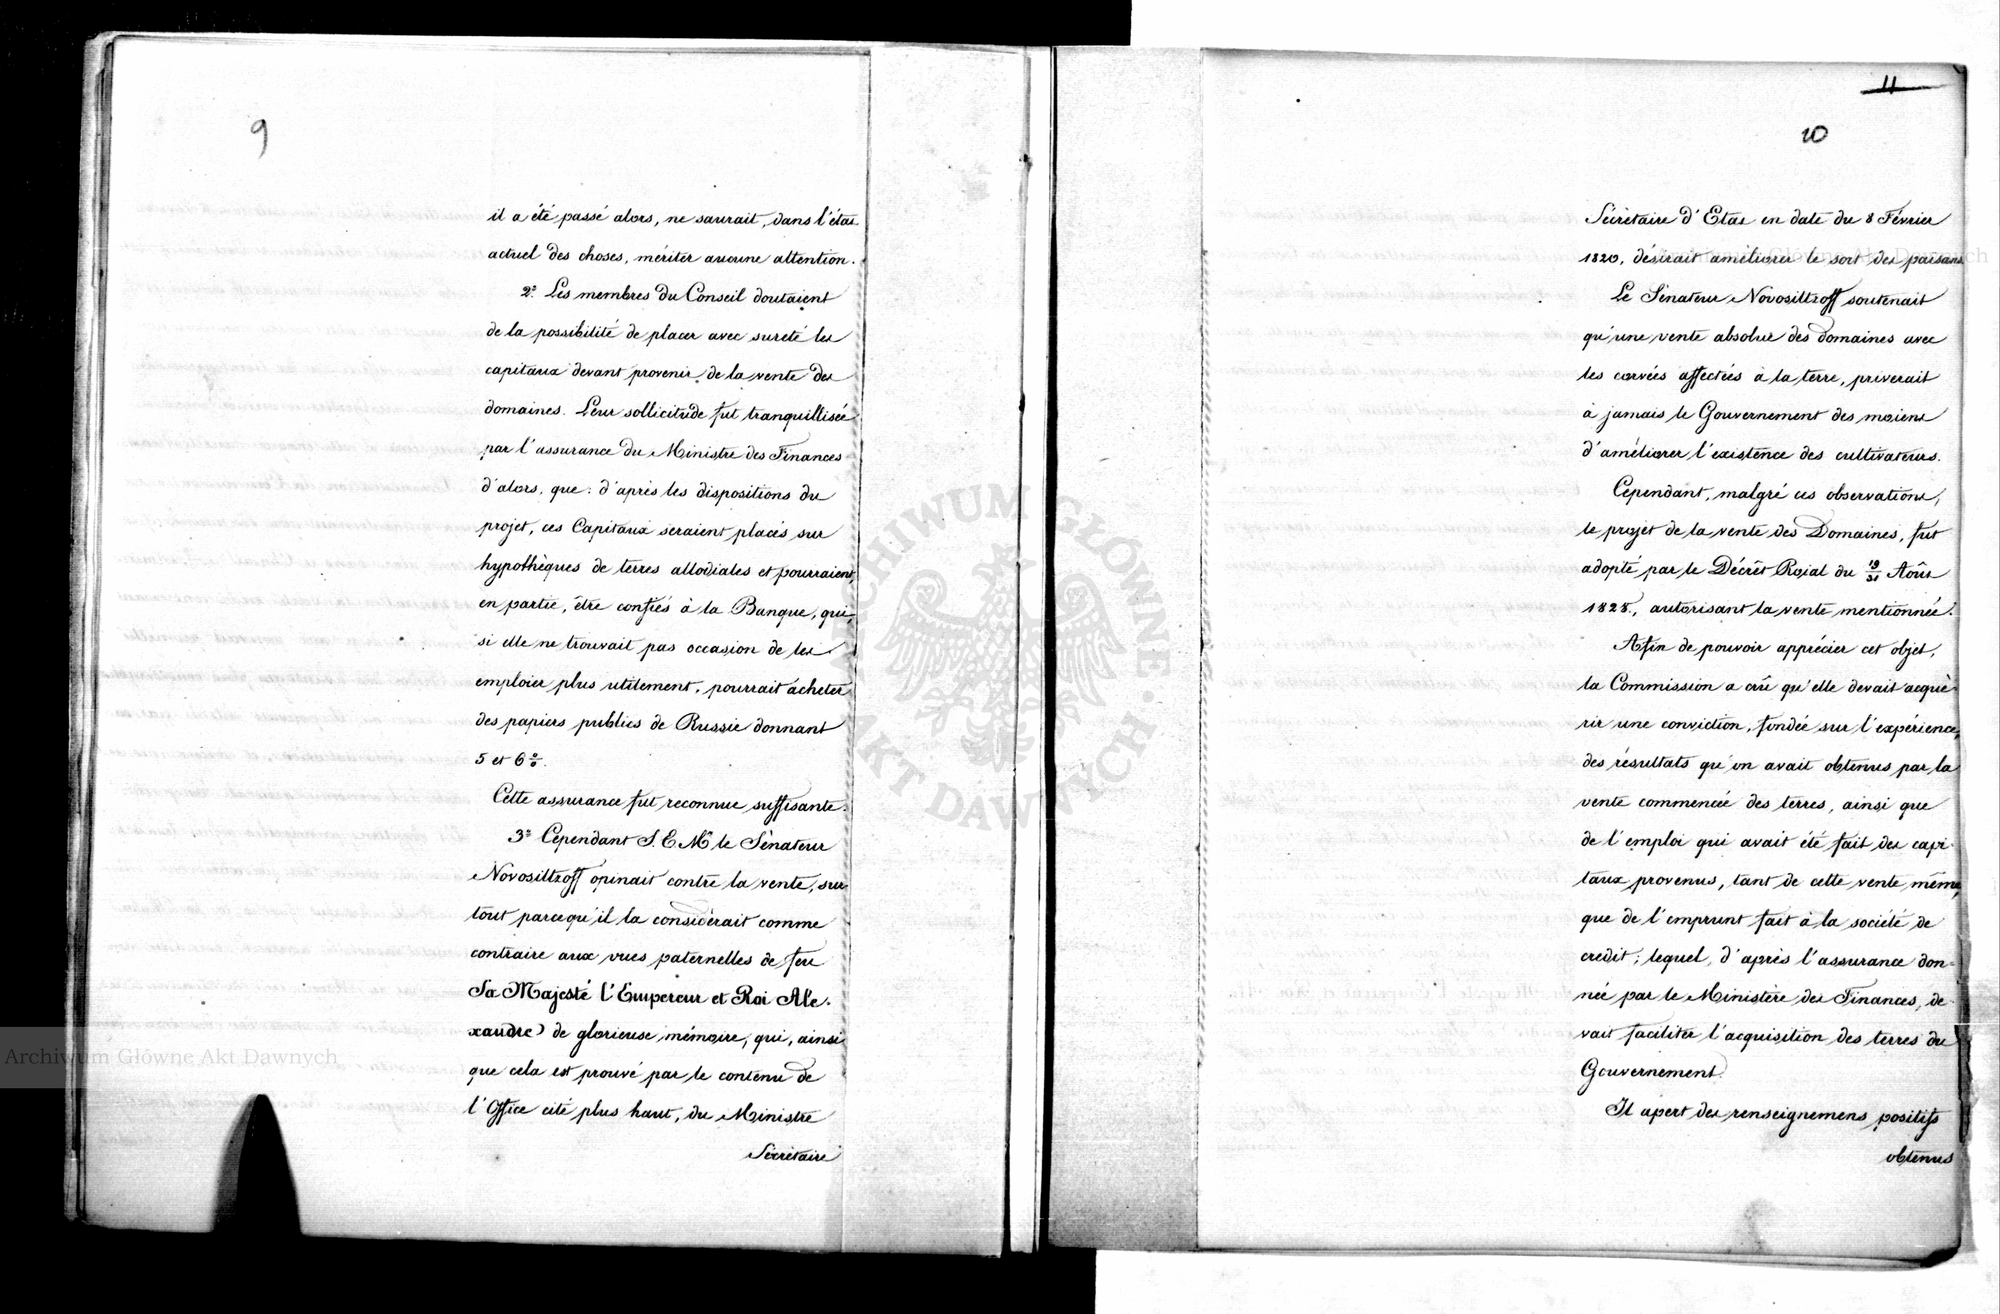 9
il a été passé alors, ne saurait, dans l'état
actuel des choses, mériter aucune attention.
2º Les membres du Conseil doutaient
de la possibilité de placer avec sureté les
capitaux devant provenir de la vente des
domaines. Leur sollicitude fut tranquillisée
par l'assurance du Ministre des Finances
d'alors, que: d'après les dispositions du
projet, ces Capitaux seraient placés sur
hypothèques de terres allodiales et pourraient,
en partie, être confiés à la Banque, qui,
si elle ne trouvait pas occasion de les
emploier plus utilement, pourrait acheter
des papiers publics de Russie donnant
5 et 6 %.
Cette assurance fut reconnue suffisante.
3º Cependant S. E. Mr le Sénateur
Novosiltzoff opinait contre la vente, sur
tout parcequ'il la considérait comme
contraire aux vues paternelles de feu
Sa Majesté l'Empereur et Roi Ale-
xandre de glorieuse mémoire, qui, ainsi
que cela est prouvé par le contenu de
l'Office cité plus haut, du Ministre
Sécrétaire
11
10
Sécrétaire d'Etat en date du 8 Février
1820, désirait améliorer le sort des paisans.
Le Sénateur Novosiltzoff soutenait
qu'une vente absolue des domaines avec
les corvées affectées à la terre, priverait
à jamais le Gouvernement des moiens
d'améliorer l'existence des cultivateurs.
Cependant, malgré ces observations,
le projet de la vente des Domaines, fut
adopté par le Décrêt Roial du 19/31 Août
1828, autorisant la vente mentionnée.
Afin de pouvoir apprécier cet objet,
la Commission a crû qu'elle devait acqué-
rir une conviction, fondée sur l'expérience,
des résultats qu'on avait obtenus par la
vente commencée des terres, ainsi que
de l'emploi qui avait été fait des capi-
taux provenus, tant de cette vente même,
que de l'emprunt fait à la société de
credit; lequel, d'après l'assurance don-
née par le Ministère des Finances, de-
vait faciliter l'acquisition des terres du
Gouvernement.
Il apert des renseignemens positifs
obtenus
Archiwum Główne Akt Dawnych
Archiwum Główne Akt Dawnych
ARCHIWUM GŁÓWNE AKT DAWNYCH